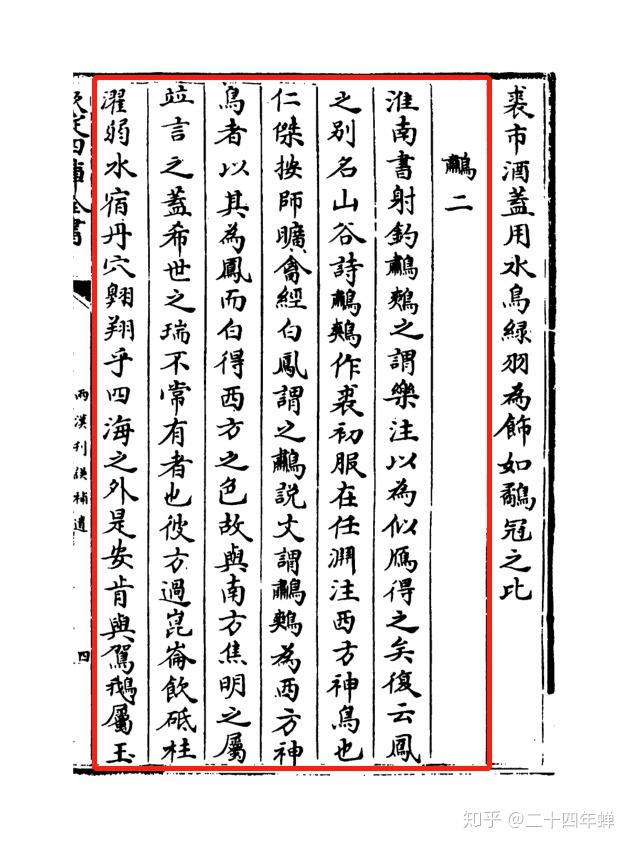 裘市酒蓋用水鳥綠羽為飾如鷸冠之比
鷫二
淮南書射釣鷫鷞之謂樂注以為似鴈得之矣復云鳳
之别名山谷詩鷫鷞作裘初服在任淵注西方神鳥也
仁傑按師曠禽經白鳳謂之鷫說文謂鷫鷞為西方神
鳥者以其為鳳而白得西方之色故與南方焦明之屬
竝言之蓋希世之瑞不常有者也彼方過崑崙飲砥柱
濯弱水宿丹穴翺翔乎四海之外是安肯與鴐鵝屬玉
欽定四庫全書
兩漢刋誤補遺
四
知乎 @二十四年蝉